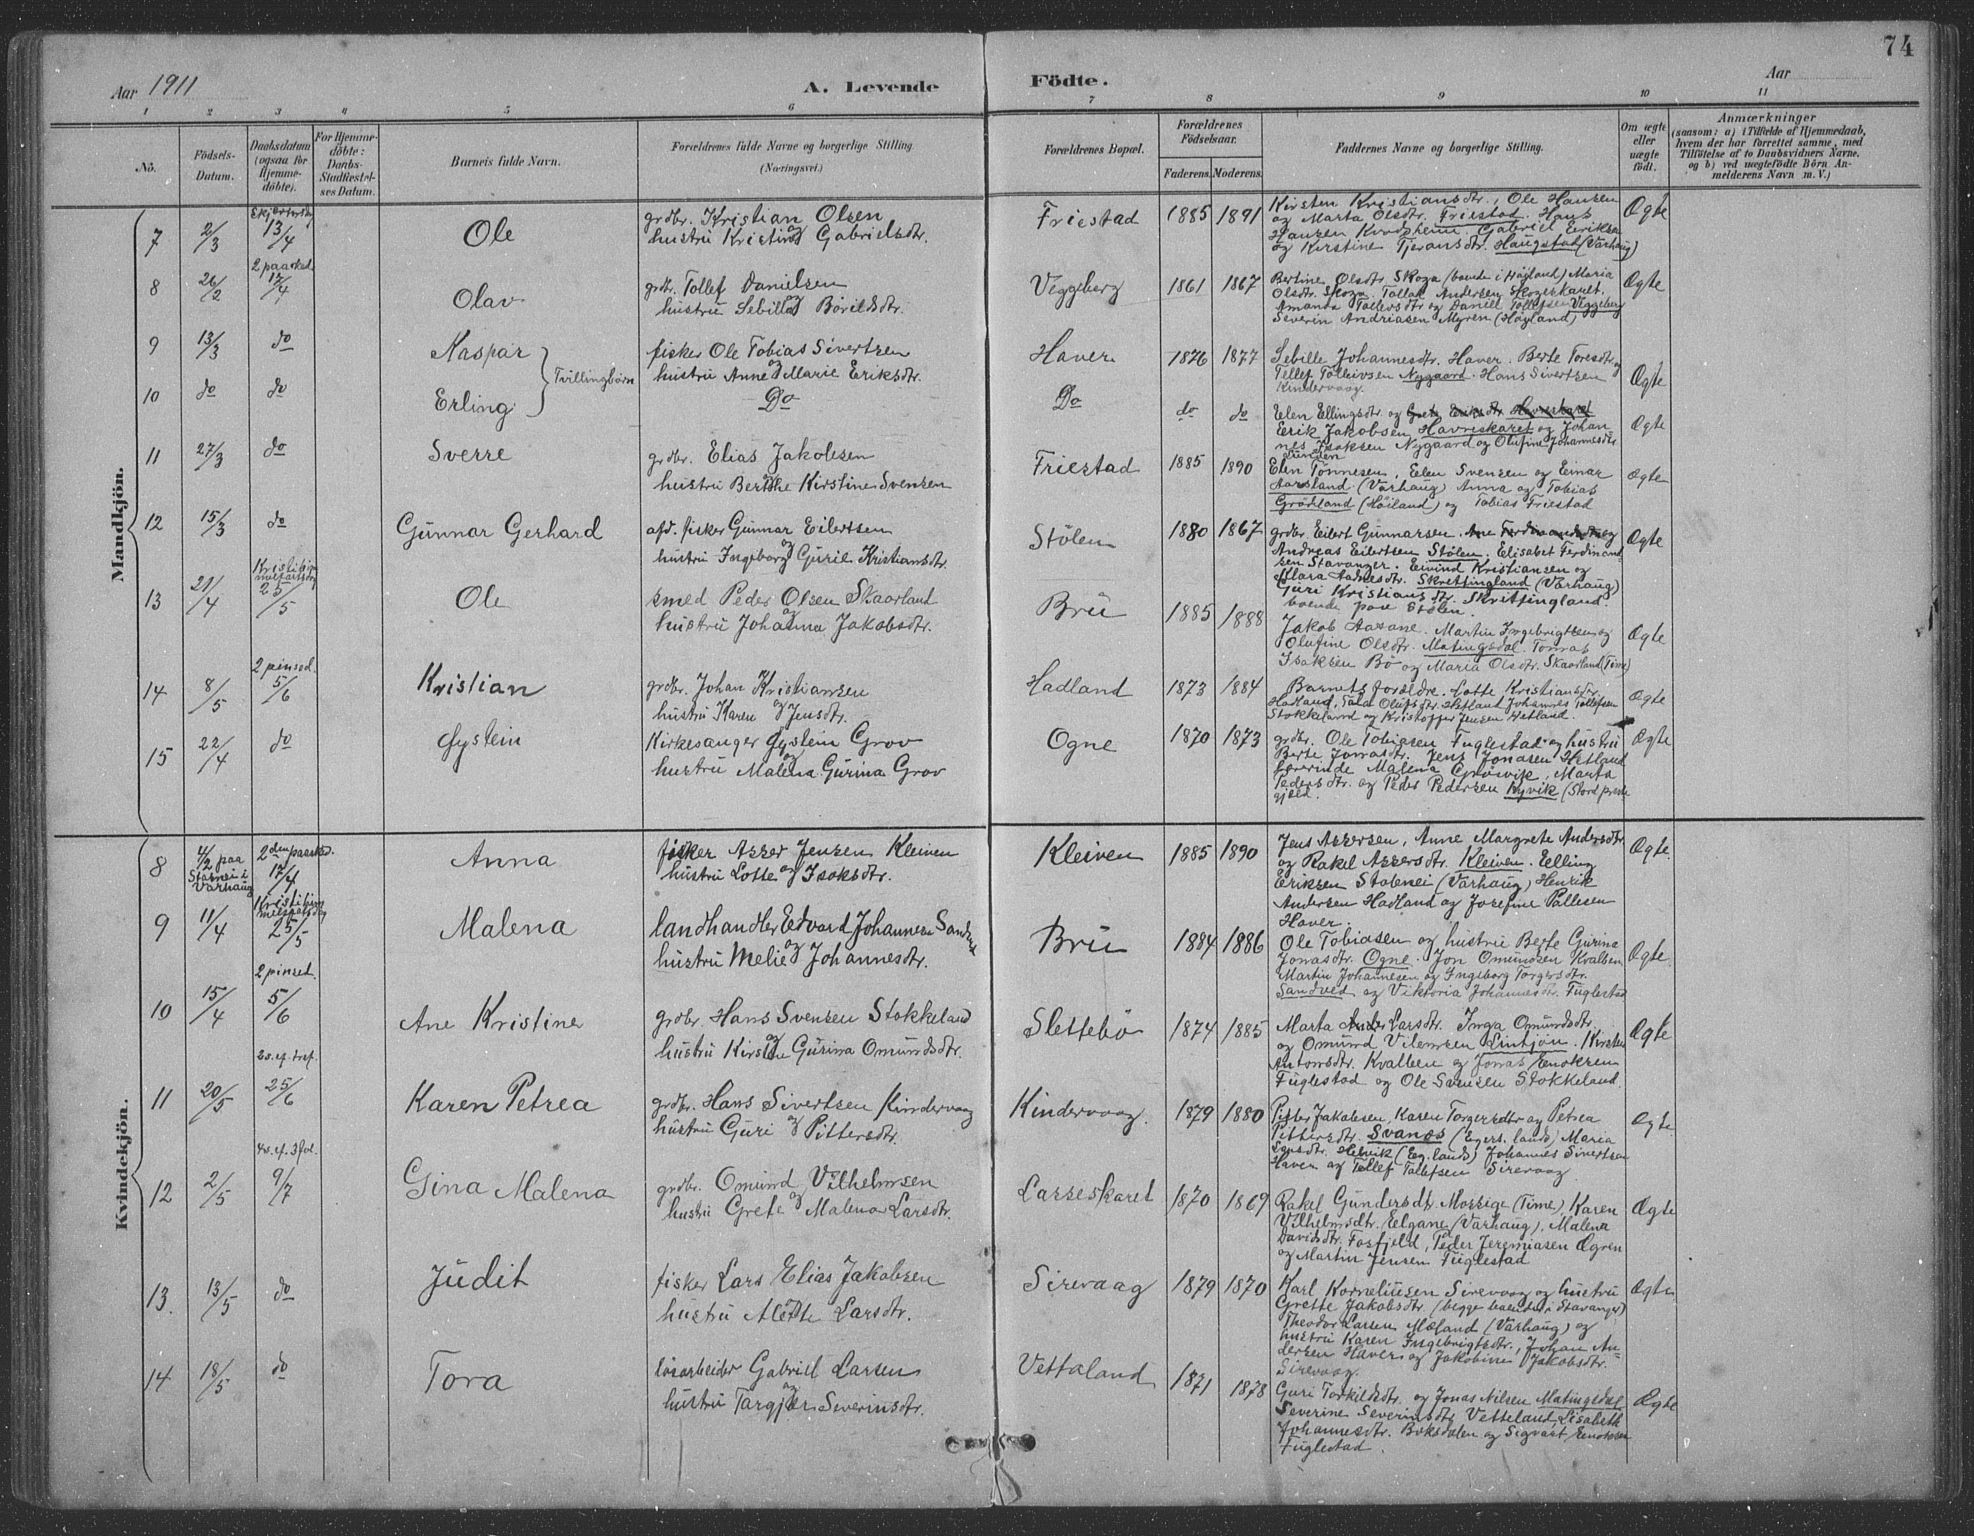 74
Aar 1911
A. Levende
Födte.
Aar
1 2 3 4 5 6 7 8 9 10 11
No.
Födsels-
Datum.
Daabsdatum
(ogsaa for
Hjemme-
döbte).
For Hjemme-
döbte:
Daabs-
Stadfæstel-
ses Datum.
Barnets fulde Navn.
Forældrenes fulde Navne og borgerlige Stilling
(Næringsvei.)
Forældrenes Bopæl.
Forældrenes
Födselsaar.
Faderens. Moderens.
Faddernes Navne og borgerlige Stilling.
Om ægte
eller
uægte
födt.
Anmærkninger
(saasom: a) i Tilfælde af Hjemmedaab,
hvem der har forrettet samme, med
Tilföielse af to Daabsvidners Navne,
og b) ved uægtefödte Börn An-
melderens Navn m. V.)
Mandkjön.
7 2/3 Skjærtorsdag 13/4 Ole
grdbr. Kristian Olsen
og
hustru Kristine Gabrielsdtr.
Friestad 1885 1891
Kirsten Kristiansdtr., Ole Hansen
og Marta Olsdtr. Friestad. Hans
Hansen Kvodheim. Gabriel Eriksen
og Kirstine Tjeransdtr. Haugstad (Varhaug)
Ægte
8 26/2 2 paasked. 17/4 Olav
grdbr. Tollef Danielsen
og
hustru Sebille Borildsdtr.
Viggberg 1861 1867
Bertine Olsdtr. Skoga (boende i Højland) Maria
Olsdtr. Skoga. Tollak Andersen Skogerkaret.
Amanda Tollefsdtr og Daniel Tollefsen Viggberg
Severin Andriasen Myren (Høyland)
Ægte
9 13/3 do Kaspar
fisker Ole Tobias Sivertsen
og
hustru Anne Marie Eriksdtr.
Haver 1876 1877
Sebille Johannesdtr. Haver. Berte Toresdtr. og
Tellef Tølleivsen Nygaard. Hans Sivertsen
Kindervaag.
Ægte
Tvillingbørn
10 do do Erling
Do
Do do do
Elen Ellingsdtr. og Grete Eriksdtr Havreskaret
Erik Jakobsen Havreskaret og Johan-
nes Isaksen Nygaard og Olufine Johannesdtr
Lunden
Ægte
11 27/3 do Sverre
grdbr. Elias Jakobsen
og
hustru Berthe Kirstine Svensen
Friestad 1885 1890
Elen Tønnesen, Elen Svensen og Einar
Aarsland (Varhaug) Anna og Tobias
Grødeland (Høiland) og Tobias Friestad
Ægte
12 15/3 do Gunnar Gerhard
afd. fisker Gunnar Eilertsen
og
hustru Ingeborg Guril Kristiansdtr.
Stölen 1880 1867
grdbr. Eilert Gunnarsen. Ane Ferdinandsdtr og
Andreas Eilertsen Stölen. Elisabet Ferdinand
sen Stavanger. Eivind Kristiansen og
Klara Aadnesdtr. Skrettingland (Varhaug)
Guri Kristiansdtr. Skrettingland
boende paa Stölen.
Ægte
13 21/4 Kristi him
melfartsdag 25/5 Ole
smed Peder Olsen Skaarland
og
hustru Johanna Jakobsdtr.
Brü 1885 1888
Jakob Aasane. Martin Ingebrigtsen og
Olufine Olsdtr. Matingsdal. Tomas
Isaksen Bö og Maria Olsdtr. Skaarland (Time)
Ægte
14 8/5 2 pinsed. 5/6 Kristian
grdbr. Johan Kristiansen
og
hustru Karen Jensdtr.
Hadland 1873 1884
Barnets forældre. Lotte Kristiansdtr.
Hadland, Olufsdtr. Hetland Johannes Tollefsen
Stokkeland og Kristoffer Jensen Hetland.
Ægte
15 22/4 do Øystein
Kirkesanger Øystein Grov
og
hustru Malena Gurina Grov
Ogne 1870 1873
grdbr. Ole Tobiasen Fuglestad og hustru
Berte Jonasdtr. Jens Jonasen Hetland
lærerinde Malena Grøsvik, Marta
Pedersdtr. og Peder Pedersen Kyvik (Stord preste
gjeld.
Ægte
Kvindekjön.
8 4/2 paa
Stasnei i
Varhaug 2den paaskd. 17/4 Anna
fisker Asser Jensen Kleiven
og
hustru Lotte Isaksdtr.
Kleiven 1885 1890
Jens Assersen, Anne Margrete Andersdtr
og Rakel Assersdtr. Kleiven. Elling
Eriksen Stolenei (Varhaug) Henrik
Andersen Hadland og Josefine Pallesen
Haver.
Ægte
9 11/4 Kristi him
melfartsdag 25/5 Malena
landhandler Edvard Johannesen Sandved
og
hustru Melie Johannesdtr.
Brü 1884 1886
Ole Tobiasen og hustru Berte Gurina
Jonasdtr. Ogne. Jon Omundsen Kvalben
Martin Johannesen og Ingeborg Torgersdtr.
Sandved og Viktoria Johannesdtr. Fuglestad
Ægte.
10 15/4 2 pinsed. 5/6 Ane Kristine
grdbr. Hans Svensen Stokkeland
og
hustru Kirstine Gurina Omundsdtr.
Slettebö 1874 1885
Marta Larsdtr. Inga Omundsdtr.
og Omund Vilemsen Lintjön. Kirsten
Antonsdtr. Kvalben og Jonas Enoksen
Fuglestad og Ole Svensen Stokkeland.
Ægte
11 20/5 2s. ef. tref. 25/6 Karen Petrea
grdbr. Hans Sivertsen Kindervaag
og
hustru Guri Pittersdtr.
Kindervaag. 1879 1880
Pitter Jakobsen, Karen Torgersdtr og Petrea
Pittersdtr. Svanes (Egers. lands) Maria
Larsdtr. Helvik (Eg. lands) Johannes Sivertsen
Haver og Tollef Tollefsen Sirevaag
Ægte.
12 2/5 4s. ef. 3fol. 9/7 Gina Malena
grdbr. Omund Vilhelmsen
og
hustru Grete Malena Larsdtr.
Lasseskaret 1870 1869
Rakel Gundersdtr. Mossige (Time) Karen
Vilhelmsdtr. Eelgane (Varhaug), Malena
Davidsdtr. Fosfjeld, Peder Jeremiasen Ogren
og Martin Jensen Fuglestad
Ægte
13. 13/5 do Judit
fisker Lars Elias Jakobsen
og
hustru Alette Larsdtr.
Sirevaag 1879 1870
Karl Korneliusen Sirevaag og hustru
Grette Jakobsdtr. (begge boende i Stavanger)
Theodor Larsen Mæland (Varhaug) og
hustru Karen Ingebrigtsdtr., Johan An-
dersen Haver og Jakobine Jakobsdtr.
Sirevaag.
Ægte
14 18/5 do Tora
løsarbeider Gabriel Larsen
og
hustru Targjer Severinsdtr.
Vettaland 1871 1878
Guri Torkildsdtr. og Jonas Nilsen Matingsdal
Severine Severinsdtr Vetteland, Lisabeth
Johannesdtr. Boksdalen og Sigvart Enoksen
Fuglestad.
Ægte